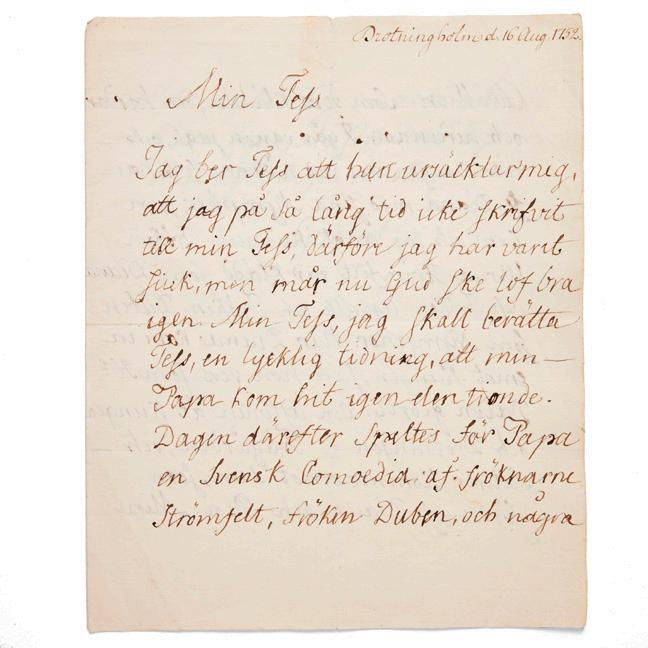 Drotningholm d. 16 Aug. 1752.
Min Tess
Jag ber Tess att han ursäcktar mig,
att jag på så lång tid icke skrifvit
till min Tess, därföre jag har varit
siuk, men mår nu Gud ske lof bra
igen. Min Tess, jag skall berätta
Tess, en lycklig tidning, att min—
Papa kom hit igen den tionde.
Dagen därefter speltes för Papa
en Svensk Comoedia af fröknarne
Strömfelt, fröken Duben, och några